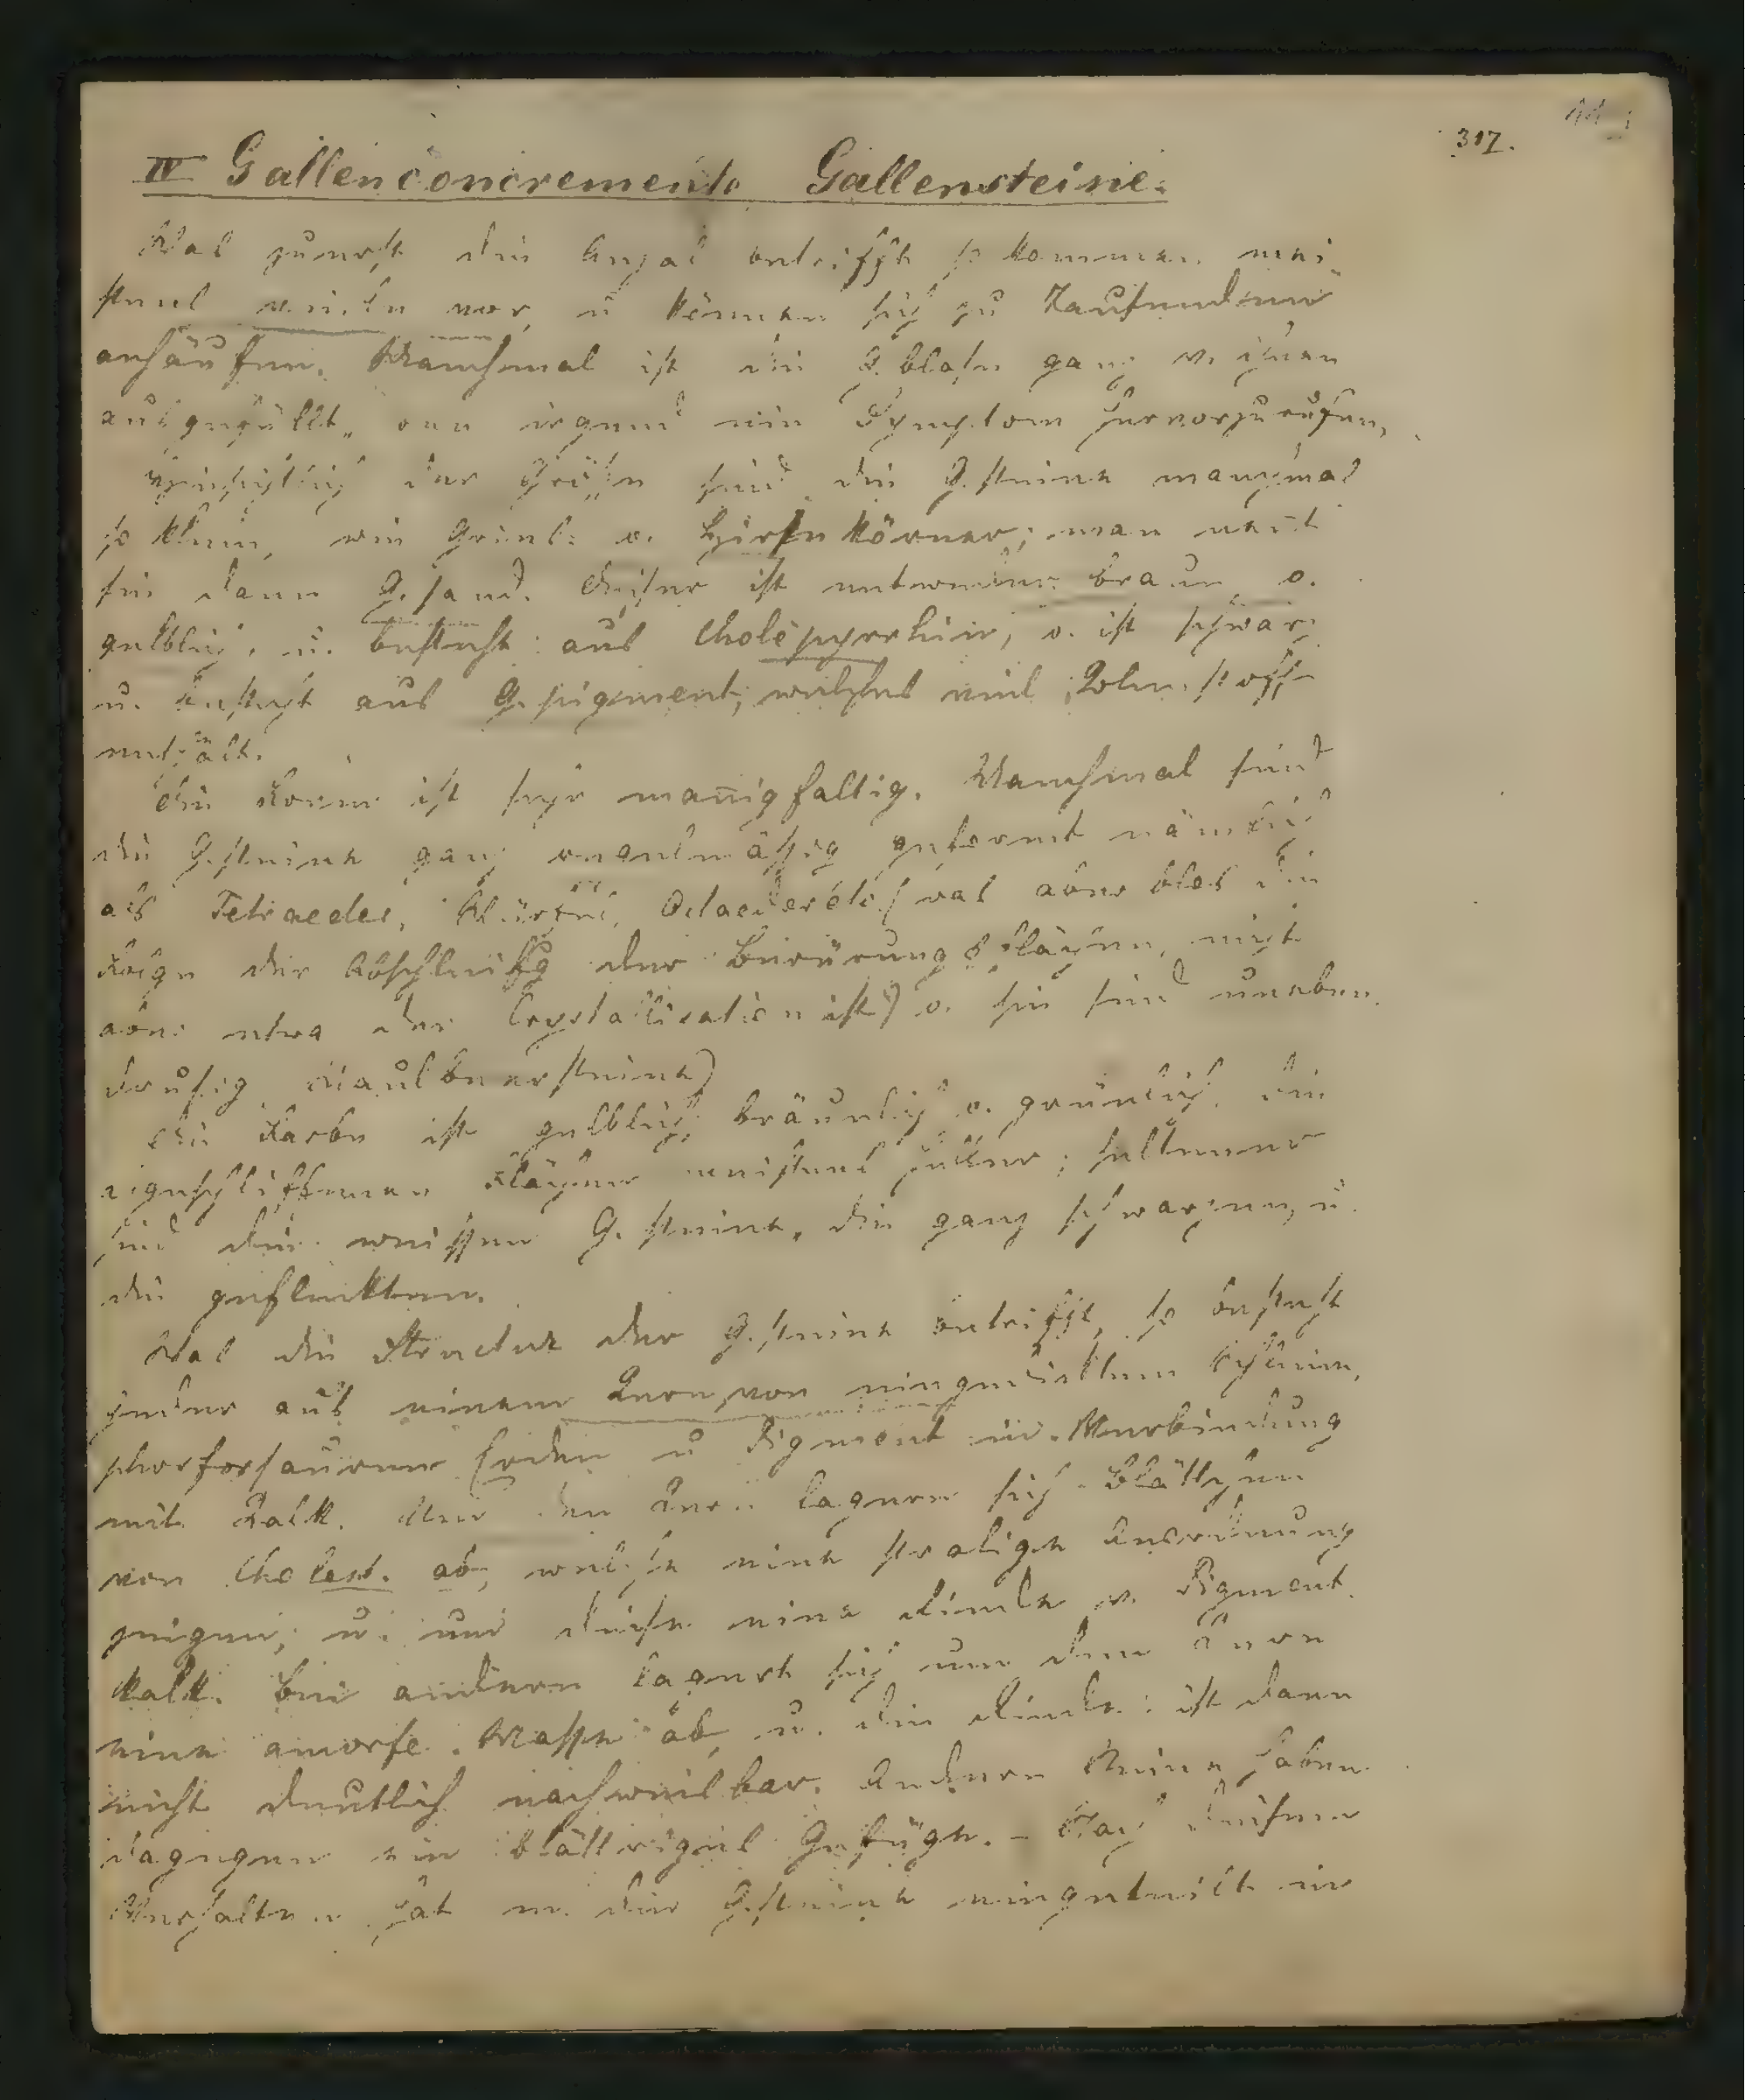 317.
IV Gallenconcremente Gallensteine.
Was zuerst die Anzal betrifft so kommen mei-
stens viele vor, u können sich zu Tausenden
anhäufen. Manchmal ist die G. blase ganz v. ihnen
ausgefüllt, one irgend ein Symptom hervorzurufen.
Hinsichtlich der Größe sind die G. steine manchmal
so klein, wie Gries- o. Hirsekörner; man nent
sie dann G. sand. Dieser ist entweder braun o.
gelblich, u. besteht aus Cholepyrrhin, o. ist schwarz
u. besteht aus G. pigment, welches viel Kolenstoff
enthält.
Die Form ist sehr manigfaltig. Manchmal sind
die G. steine ganz regelmäßig geformt nämlich
als Tetraeder, Würfel, Octaeder etc. (was aber blos die
Folge der Abschleifg der Berürungsflächen, nicht
aber etwa der Crystallisation ist) o. sie sind uneben
drusig Maulbeersteine)
Die Farbe ist gelblich, bräunlich o. grünlich, die
abgeschliffenen Flächen meistens heller; seltener
sind die weissen G. steine, die ganz schwarzen, u.
die gefleckten.
Was die Structur der G. steine betrifft, so besteht
jeder aus einem Kern, von eingedicktem Schleim,
phosforsauren Erden u Pigment in Verbindung
mit Kalk. Um den Kern lagern sich Blättchen
von Cholest. ab, welche eine stralige Anordnung
zeigen, u. um diese eine Rinde v. Pigment-
kalk. Bei andern lagert sich um den Kern
eine amorfe Masse ab, u. die Rinde ist dann
nicht deutlich nachweisbar. Andere Steine haben
dagegen ein blättriges Gefüge. – Nach diesem
Verhalten hat m. die G. steine eingeteilt in